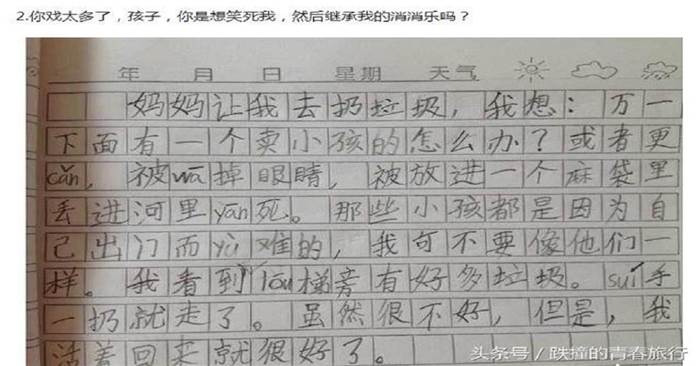 2.你戏太多了，孩子，你是想笑死我，然后继承我的消消乐吗？
年 月 日 星期 天气
妈妈让我去扔垃圾，我想：万一
下面有一个卖小孩的怎么办？或者更
cǎn，被wā掉眼睛，被放进一个麻袋里
丢进河里yān死。那些小孩都是因为自
己出门而yù难的，我可不要像他们一
样。我看到lóu梯旁有好多垃圾。suí手
一扔就走了。虽然很不好，但是，我
活着回来就很好了。
头条号 / 跌撞的青春旅行